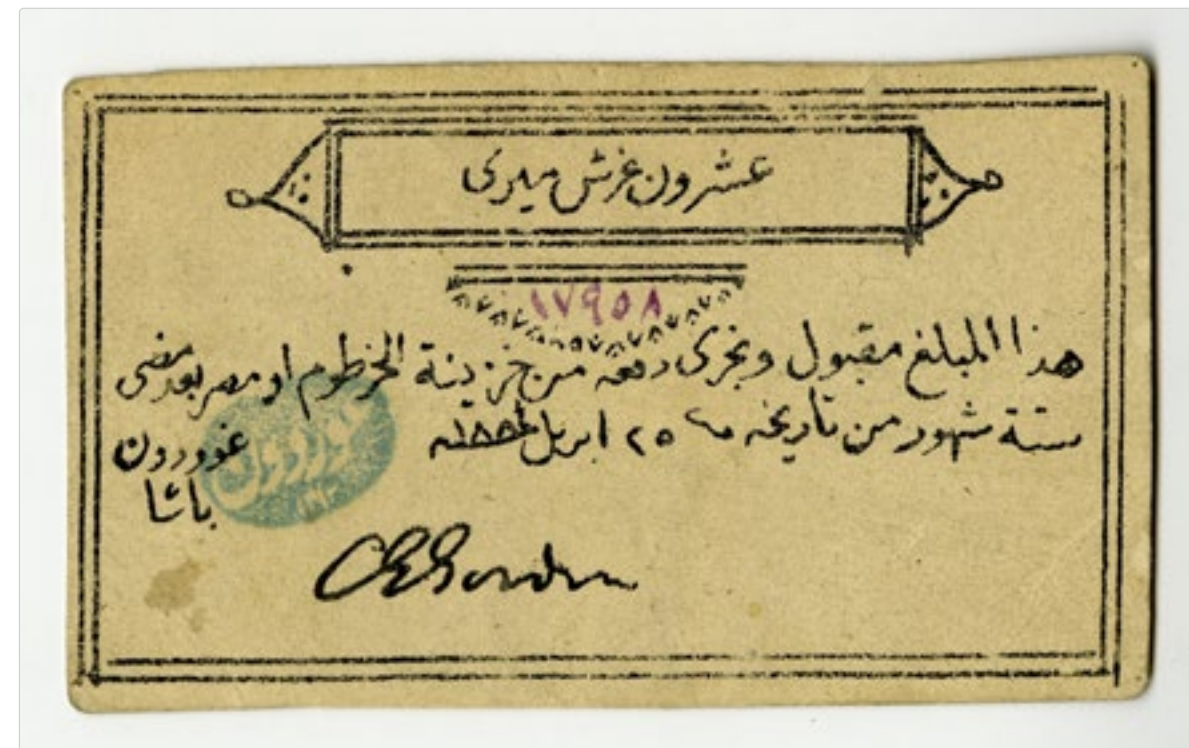 عشرون غرش ميرى
١٧٩٥٨
هذا المبلغ مقبول ويجرى دفعه من خزينة الخرطوم او مصر بعد مضى
ستة شهور من تاريخه ٢٥ ابريل ١٨٨٤
غوردون
باشا
C G Gordon